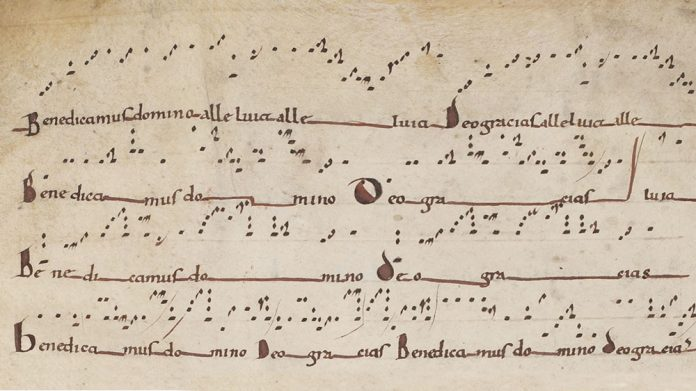 Benedicamus domino alleluia alle luia Deo gracias alleluia alle
Benedica mus do mino Deo gra cias luia
Bene di camus do mino deo gra cias
benedica mus do mino Deo gra cias Benedica mus do mino deo gracias